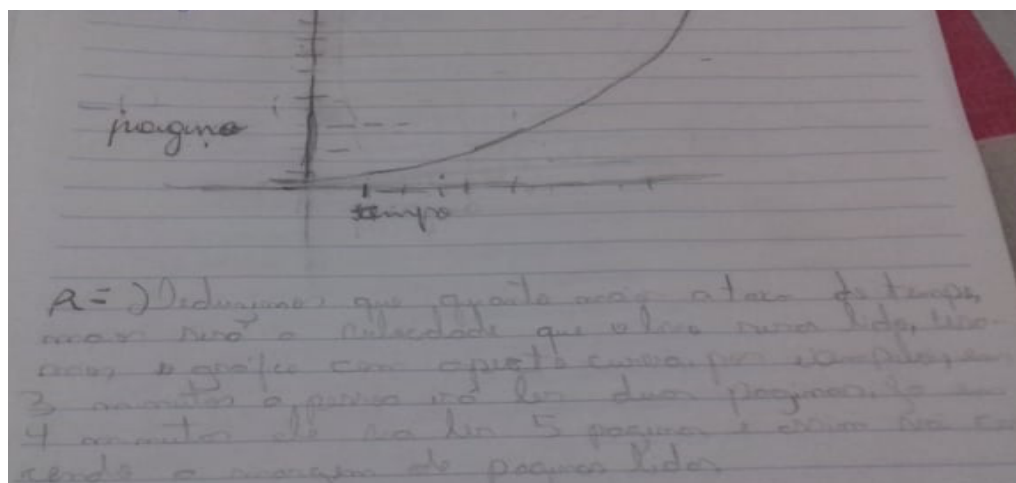 pagina
tempo
R=) Deduzimos que quanto mais a taxa de tempo,
mais será a velocidade que o livro sera lido,
o gráfico com a reta curva, por exemplo, em
3 minutos a pessoa irá ler duas paginas, já em
4 minutos ele ira ler 5 paginas e assim vai
a margem de paginas lidas